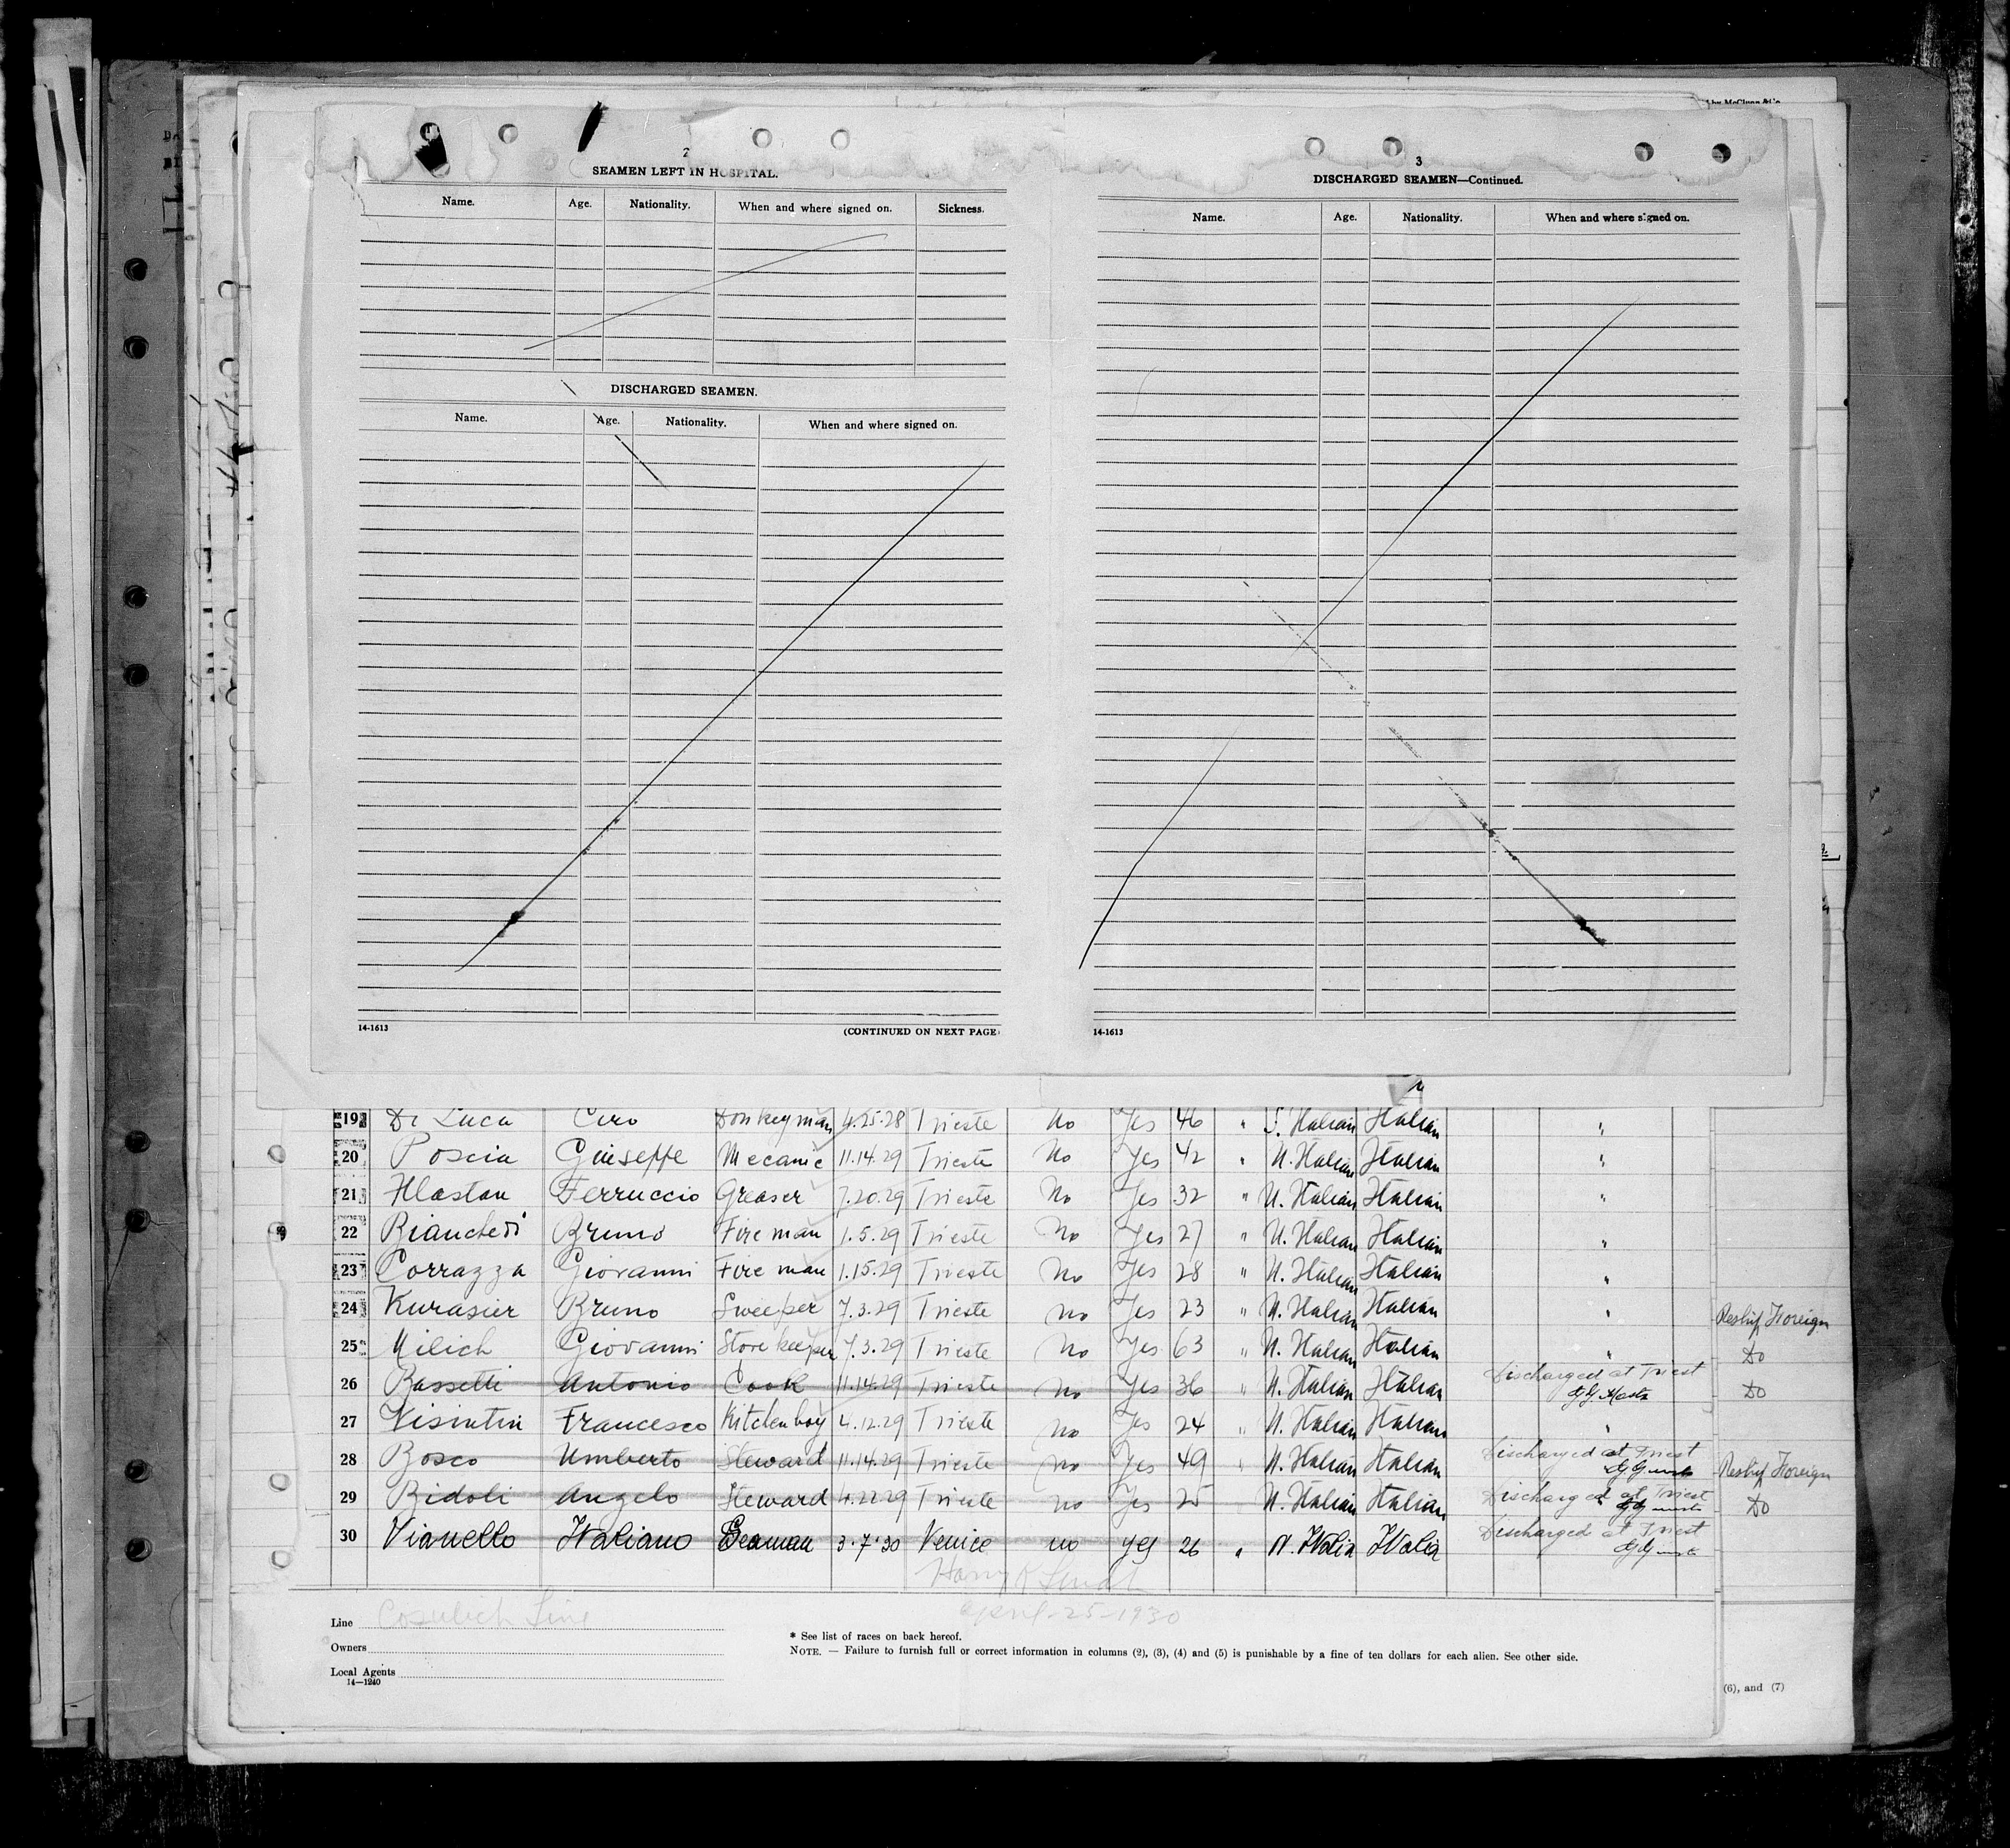 2
SEAMEN LEFT IN HOSPITAL.
Name. Age. Nationality. When and where signed on. Sickness.
DISCHARGED SEAMEN.
Name. Age. Nationality. When and where signed on.
14-1613 (CONTINUED ON NEXT PAGE
3
DISCHARGED SEAMEN—Continued.
Name. Age. Nationality. When and where signed on.
14-1613
19 Di Luca Ciro Donkeyman 4.25.28 Trieste No Yes 46 " S. Italian Italian "
20 Poscia Giuseppe Mecanic 11.14.29 Trieste No Yes 42 " N. Italian Italian "
21 Hlastan Ferruccio Greaser 7.20.29 Trieste No Yes 32 " N. Italian Italian "
22 Bianchedi Bruno Fire man 1.5.29 Trieste No Yes 27 " N. Italian Italian "
23 Corrazza Giovanni Fire man 1.15.29 Trieste No Yes 28 " N. Italian Italian "
24 Kurasier Bruno Sweeper 7.3.29 Trieste No Yes 23 " N. Italian Italian " Reship Foreign
25 Milich Giovanni Store keeper 7.3.29 Trieste No Yes 63 " N. Italian Italian " Do
26 Bassetti Antonio Cook 11.14.29 Trieste No Yes 36 " N. Italian Italian Discharged at Triest Do
27 Visintin Francesco Kitchen boy 4.12.29 Trieste No Yes 24 " N. Italian Italian "
28 Bosco Umberto Steward 11.14.29 Trieste No Yes 49 " N. Italian Italian Discharged at Triest Reship Foreign
29 Bidoli Angelo Steward 4.22.29 Trieste No Yes 25 N. Italian Italian Discharged at Triest Do
30 Vianello Italiano Seaman 3.7.30 Venice no yes 26 " N. Italia Italia Discharged at Triest
Line Cosulich Line
April-25-1930
Owners
* See list of races on back hereof.
NOTE. — Failure to furnish full or correct information in columns (2), (3), (4) and (5) is punishable by a fine of ten dollars for each alien. See other side.
Local Agents
14—1240
(6), and (7)